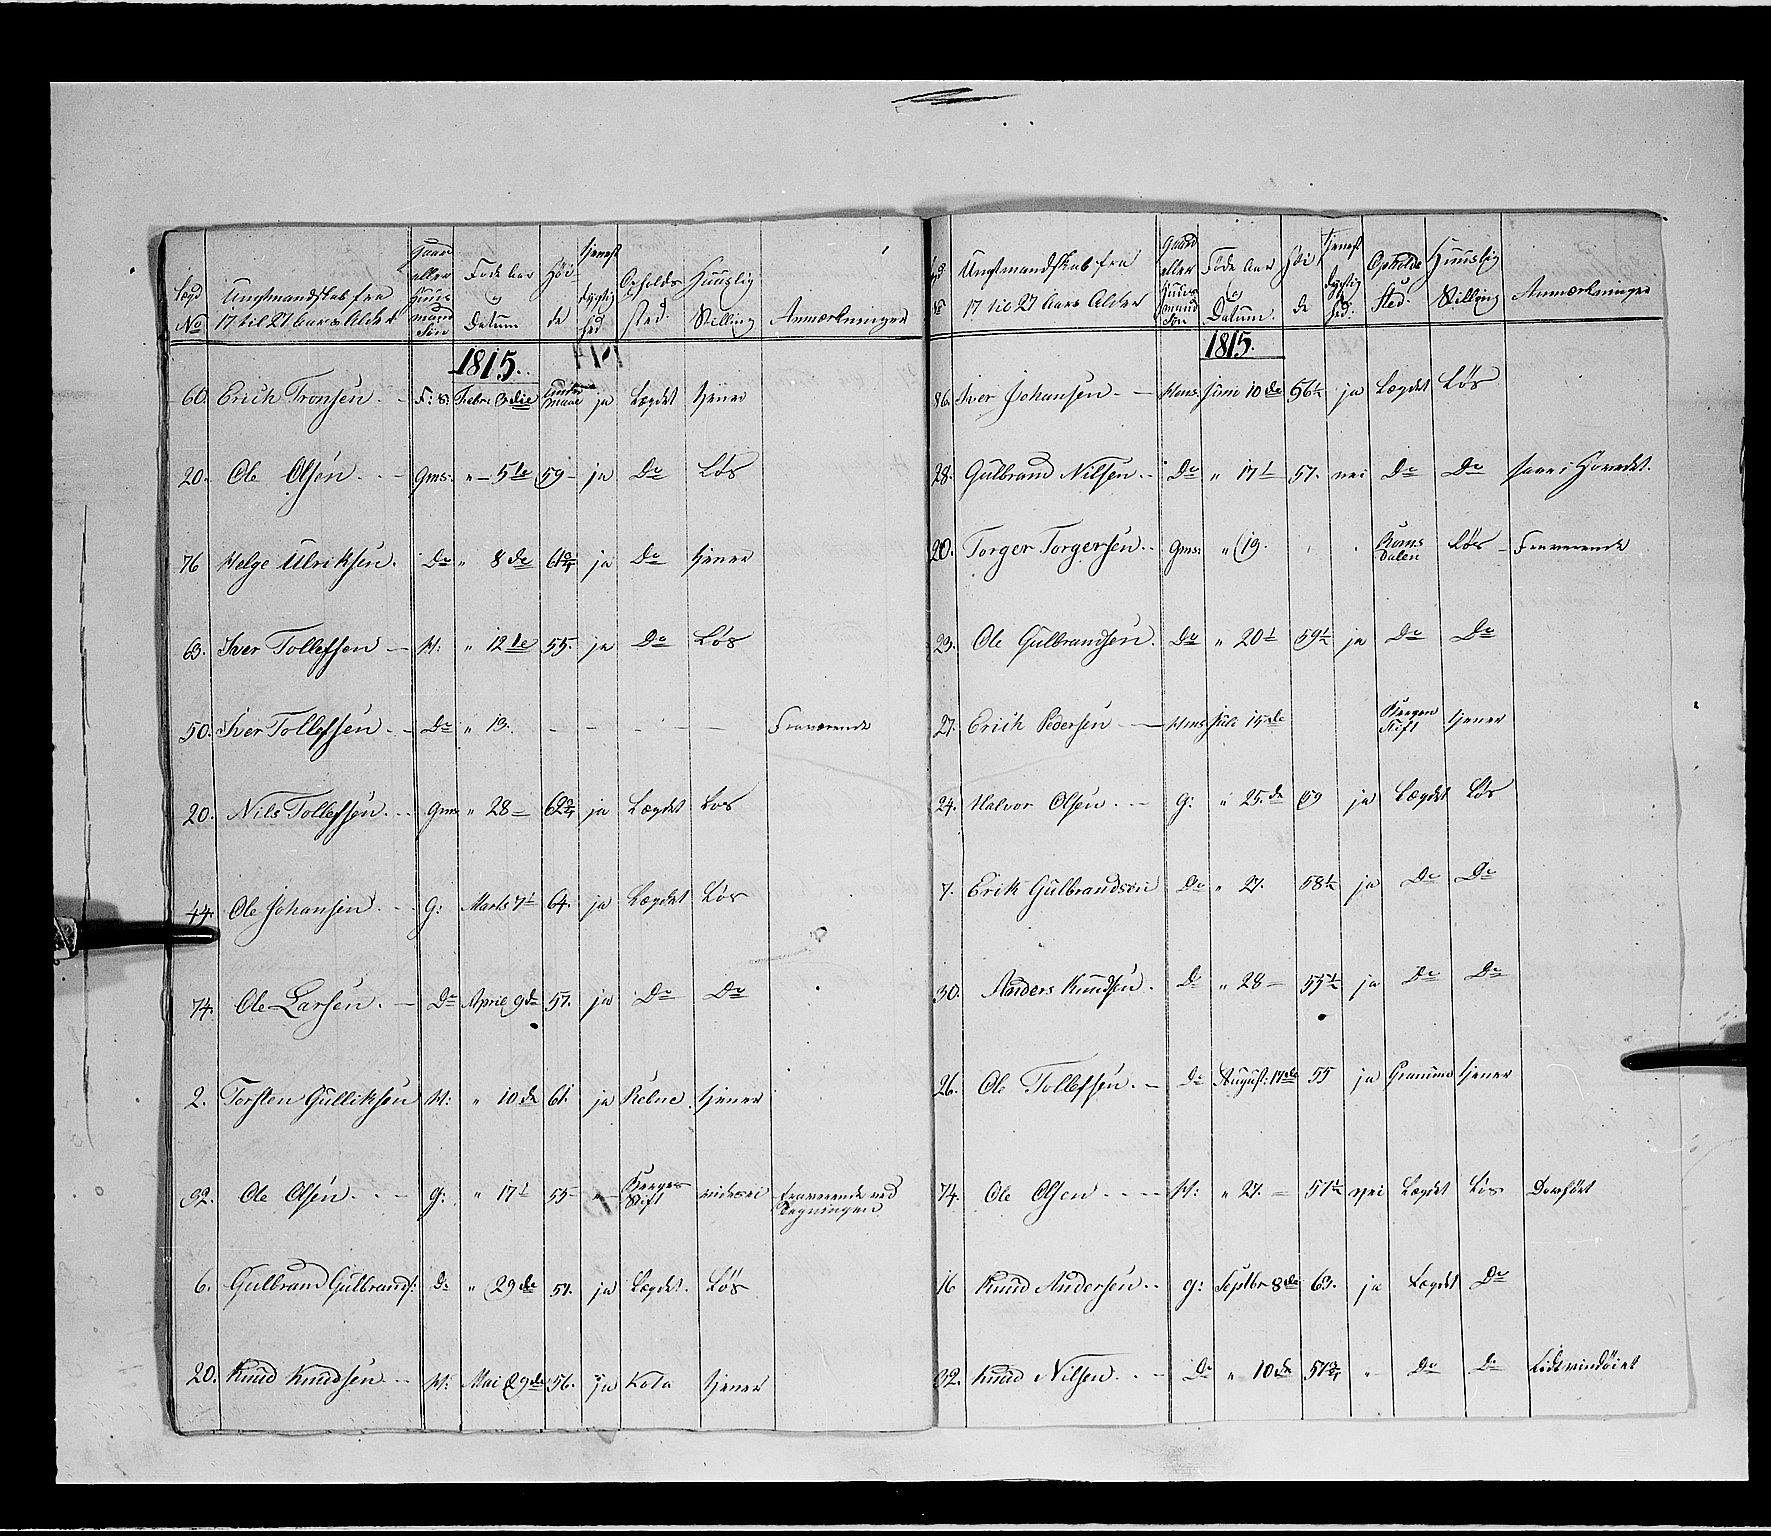 Lægd No | Ungtmandskab fra 17 til 21 Aars Alder | Gaard eller Huusmand Søn | Føde Aar og Datum | Høide | tjenestdygtighed | Opholdssted | Huuslig Stilling | Anmærkninger
1815.
60. Erich Tronsen F: S: Febr: 3die Under maal ja Lægdet tjener
20. Ole Olsen Gms: " 5te 59 ja Do Løs
76 Helge Ulriksen Do " 8de 61 3/4 ja Do tjener
63. Iver Tollefsen H: " 12te 55. ja Do Løs
50. Iver Tollefsen Do " 13. Fraværende
20. Nils Tollefsen Gms " 28 62 3/4 ja Lægdet Løs
44. Ole Johansen G: Marts 7d 64. ja Lægdet Løs
74. Ole Larsen Do April 9de 57. ja Do Do
2. Torsten Gulliksen H: " 10de 61. ja tjener
32. Ole Olsen G: " 17d 55 " Bergens Stift Fraværende ved
Tegningen
6. Gulbrand Gulbrands: Do " 29de 57. ja Lægdet. Løs
20. Knud Knudsen H: Mai 29de 56. ja Kola tjener
Ungtmandskab fra 17 til 27 Aars Alder | Gaard eller Huusmand Søn | Føde Aar og Datum. | Høide | tjenestdygtighed: | Opholds sted: | Huuslig Stilling | Anmærkninger
1815.
86. Iver Johansen Hms. Juni 10de 56 1/2 ja Lægdet Løs
28. Gulbrand Nilsen Do " 17d 57. nei Do Do saar i Hovedet.
20. Torger Torgersen Gms: " 19. Roms
dalen Løs Fraværende
23. Ole Gulbrandsen. Do " 20d 59 1/2 ja Do Do
27. Erich Pedersen Hms Juli 15de Bergen
Stift tjener
24. Halvor Olsen G: " 25.de 59 ja Lægdet Løs
7. Erik Gulbrandsøn Do " 27. 58 1/2 ja Do Do
30. Anders Knudsen. Do " 28 55 1/2 ja Do Do
26. Ole Tollefsen Do August: 17de 55 ja tjener
74. Ole Olsen H: " 27. 57 1/2 nei Lægdet Løs
16 Knud Andersen G: Septbr 8de 63. ja Lægdet Do
32. Knud Nilsen Do " 10de 57 3/4 " Do Do